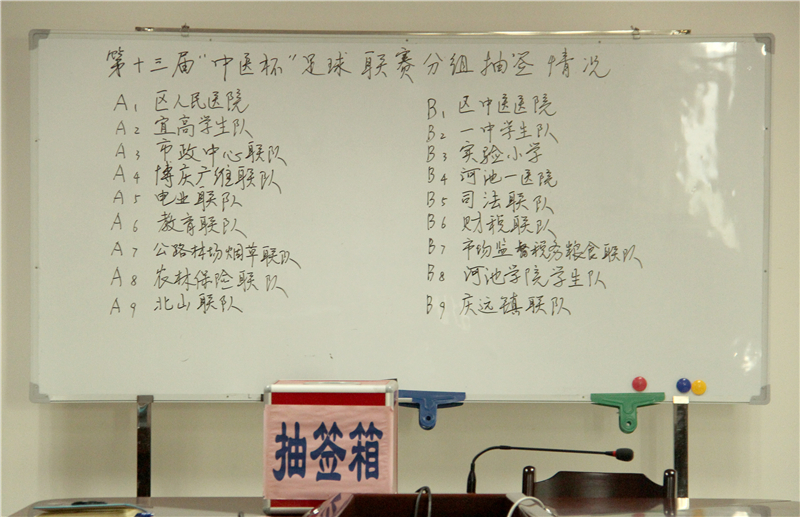 第十三届"中医杯"足球联赛分组抽签情况
A1 区人民医院
A2 宜高学生队
A3 市政中心联队
A4 博庆广维联队
A5 电业联队
A6 教育联队
A7 公路林场烟草联队
A8 农林保险联队
A9 北山联队
B1 区中医医院
B2 一中学生队
B3 实验小学
B4 河池一医院
B5 司法联队
B6 财税联队
B7 市场监督税务粮食联队
B8 河池学院学生队
B9 庆远镇联队
抽签箱